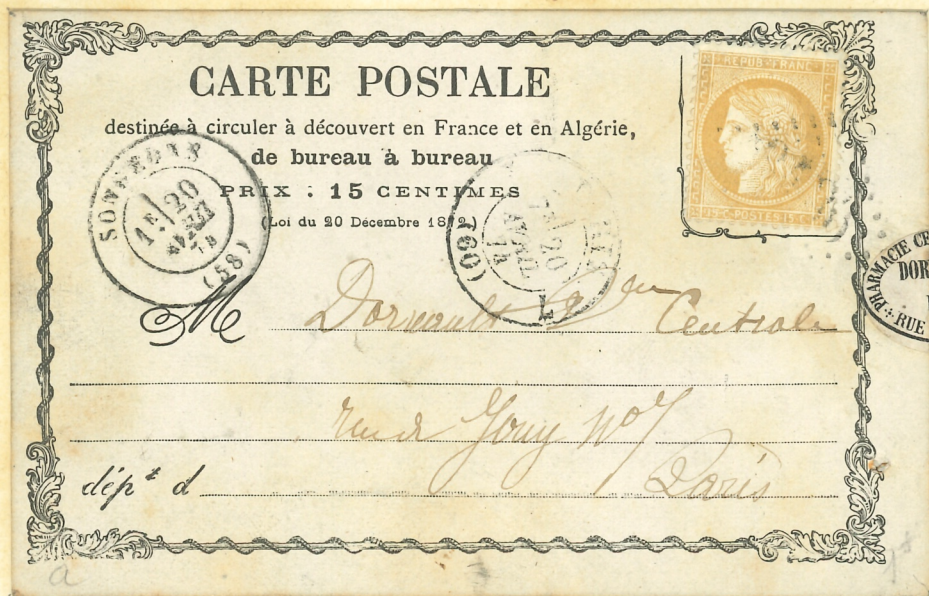 CARTE POSTALE
destinée à circuler à découvert en France et en Algérie,
de bureau à bureau
PRIX : 15 CENTIMES
(Loi du 20 Décembre 1872)
REPUB·FRANC
15 C·POSTES·15 C
SONGEONS
1E 20
AVRIL
74
(58)
20
AVRIL
74
(60)
PHARMACIE CE
DOR
RUE
M Dorvault Ph en Centrale
rue de Jouy No 7
dépt d Paris
a